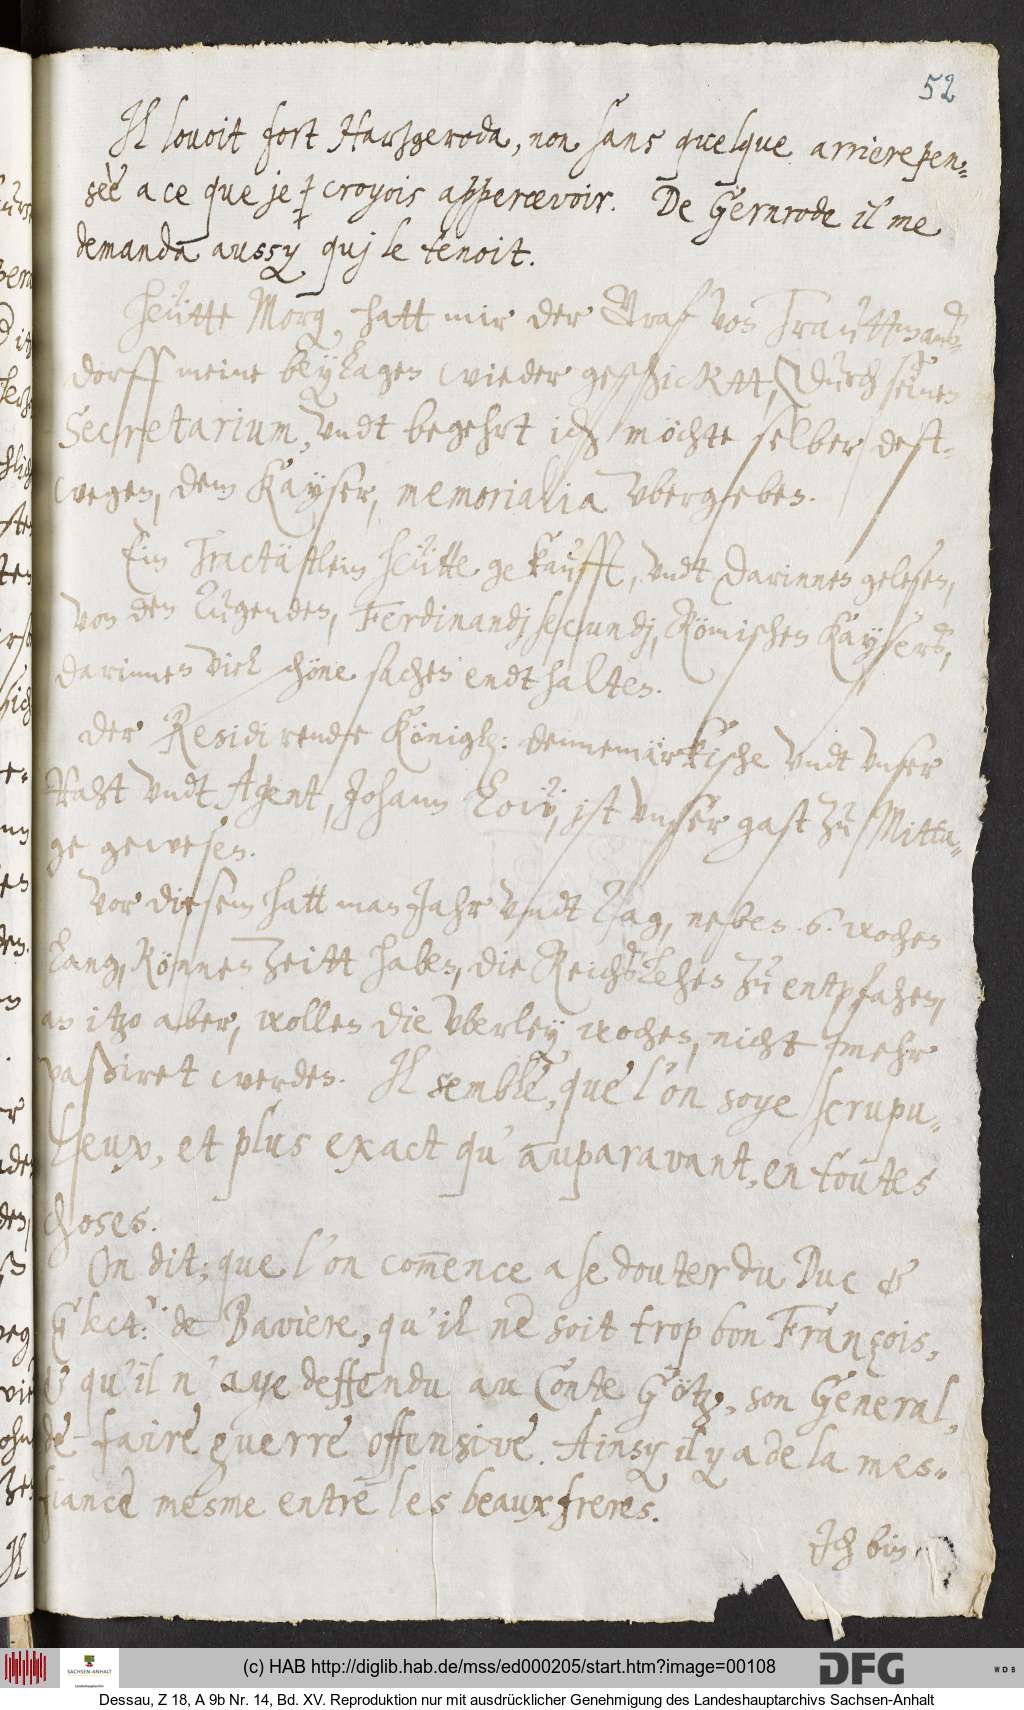 52
Il louoit fort Hartzgeroda, non sans quelque arrierepen-
séè a ce que je croyois appercevoir. De Gernrode il me
demanda aussy quj le tenoit.
Heütte Morg. hatt mir der Graf von Trauttmans-
dorff meine beylagen wieder geschicktt, durch seinen
Secretarium, undt begehrt ich möchte selber dest-
wegen, dem Kayser, memorialia vbergeben.
Ein Tractätlein heütte gekaufft, undt darinnen gelesen,
von den Tugenden, Ferdinandj secundj, Römischen Kaysers,
darinnen viel schöne sachen endthalten.
Der Residirende Königl: dennemärkische undt unser
Raht undt Agent, Johann Löw, ist unser gast zu Mitta-
ge gewesen.
Vor diesem hatt man Jahr undt Tag, neben 6. wochen
lang, können zeitt haben, die Reichslehen zu entpfahen,
an itzo aber, wollen die vberley wochen, nicht mehr
paßiret werden. Il semble, que l'on soye scrupu-
leux, et plus exact qu' auparavant, en toutes
choses.
On dit; que l'on com̄ence a se douter du Duc &
Elect:r de Baviere, qu'il ne soit trop bon François,
& qu'il n'aye deffendu au Conte Götz, son General,
de faire guerre offensive. Ainsy il y a de la mes-
fiance mesme entre les beaux freres.
Ich bin
(c) HAB http://diglib.hab.de/mss/ed000205/start.htm?image=00108
SACHSEN-ANHALT
DFG
WDB
Dessau, Z 18, A 9b Nr. 14, Bd. XV. Reproduktion nur mit ausdrücklicher Genehmigung des Landeshauptarchivs Sachsen-Anhalt